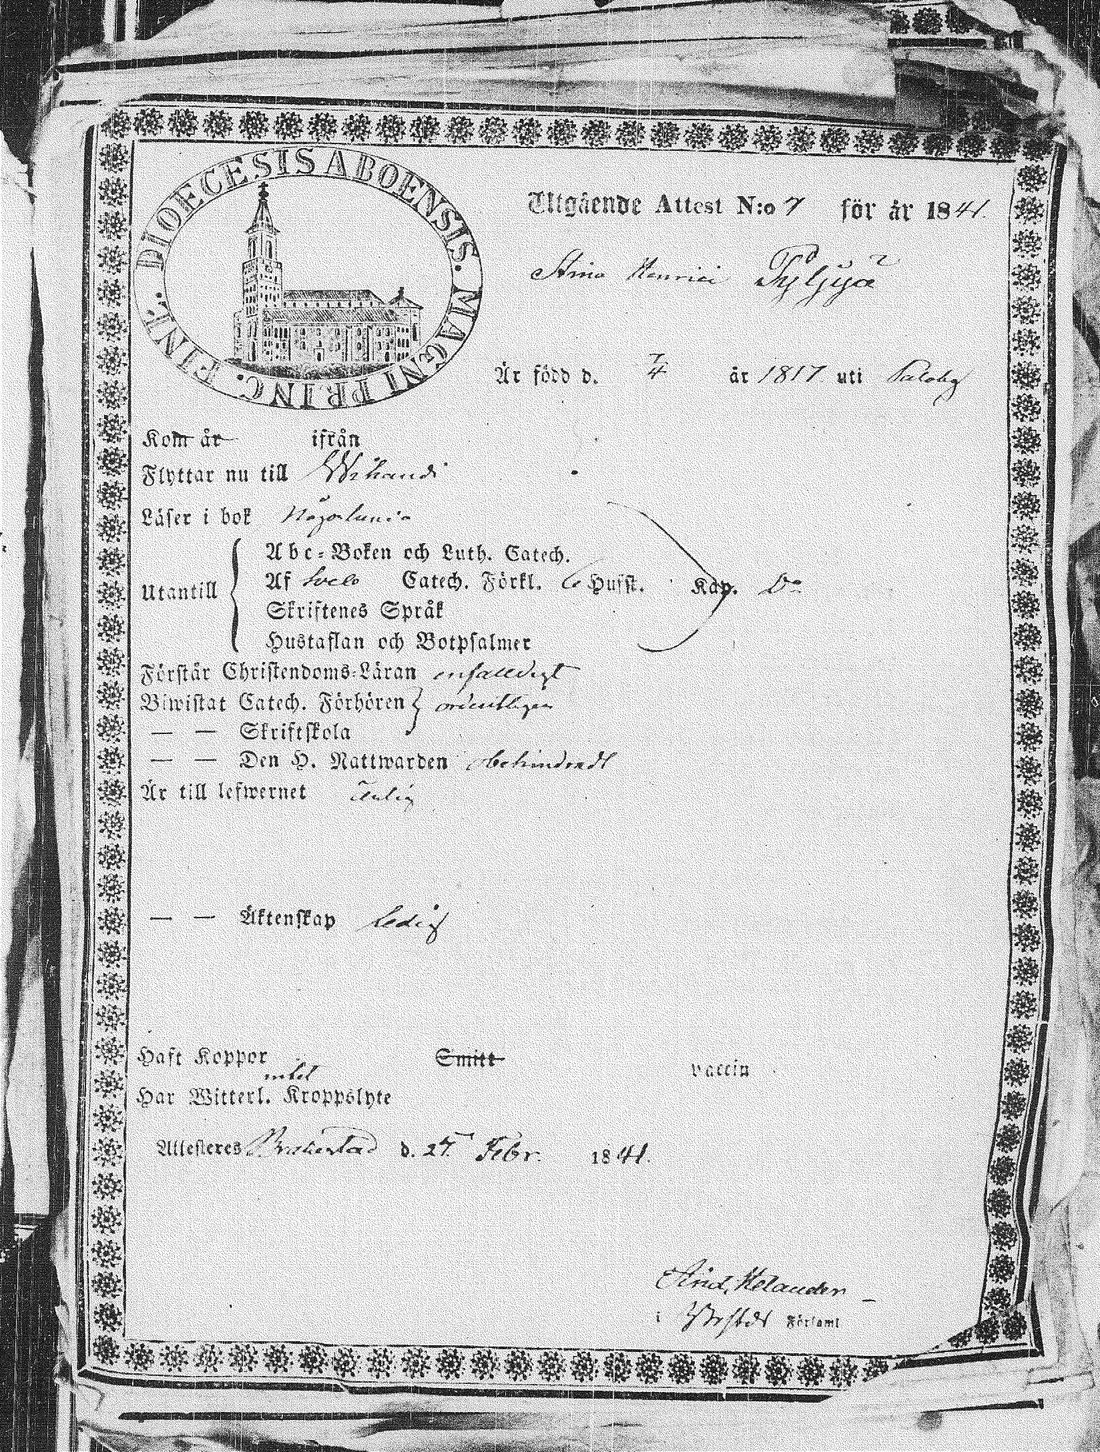 DIOECESIS ABOENSIS. MAGNI PRINC. FINL.
Utgående Attest N:o 7 för år 1841.
Stina Henrici
Är född d. 7/4 år 1817 uti
Kom år ifrån
Flyttar nu till Wihandi
Läser i bok Någorlunda
Abc-Boken och Luth. Catech.
Utantill Af Svebo Catech. Förkl. 6 Hufst. Kap. Do
Skriftenes Språk
Hustaflan och Botpsalmer
Förstår Christendoms-Läran enfaldigt
Biwistat Catech. Förhören ordentligen
— — Skriftskola
— — Den H. Nattwarden obehindradt
Är till lefwernet Ärlig
— — Äktenskap ledig
Haft Koppor Smitt vaccin
Har Witterl. Kroppslyte intet
Attesteras Brahestad d. 27 Febr. 1841.
And. Helander
i Förfaml